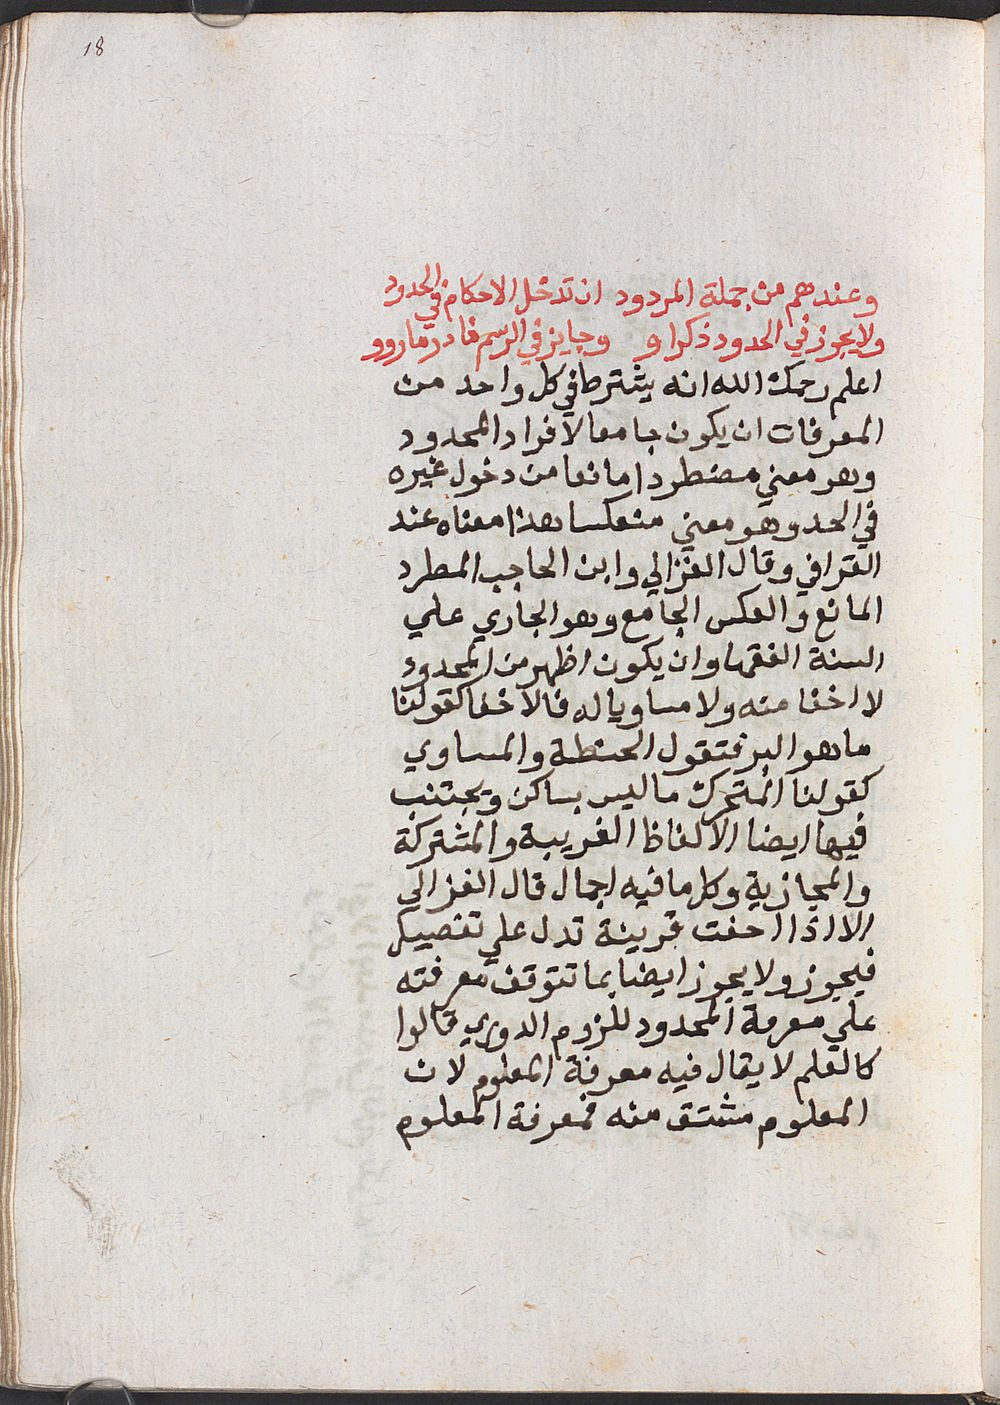 18
وعندهم من جملة المردود ان تدخل الاحكام في الحدود
ولا يجوز في الحدود ذكر او وجايز في الرسم فادر ما روو
اعلم رحمك الله انه يشترط في كل واحد من
المعرفات ان يكون جامعا لافراد المحدود
وهو معني مضطردا مانعا من دخول غيره
في الحد وهو معني منعكسا هذا معناه عند
القرافي وقال الغزالي وابن الحاجب المطرد
المانع والعكس الجامع وهو الجاري علي
السنة الفقها وان يكون اظهر من المحدود
لا اخفا منه ولا مساويا له فالاخفا كقولنا
ما هو البر فتقول الحنطة والمساوي
كقولنا المتحرك ما ليس بساكن ويجتنب
فيها ايضا الالفاظ الغريبة والمشتركة
والمجازية وكل ما فيه اجمال قال الغزالي
الا اذا احفت قرينة تدل علي تفصيل
فيجوز ولا يجوز ايضا بما تتوقف معرفته
علي معرفة المحدود للزوم الدوري قالوا
كالعلم لا يقال فيه معرفة المعلوم لان
المعلوم مشتق منه فمعرفة المعلوم